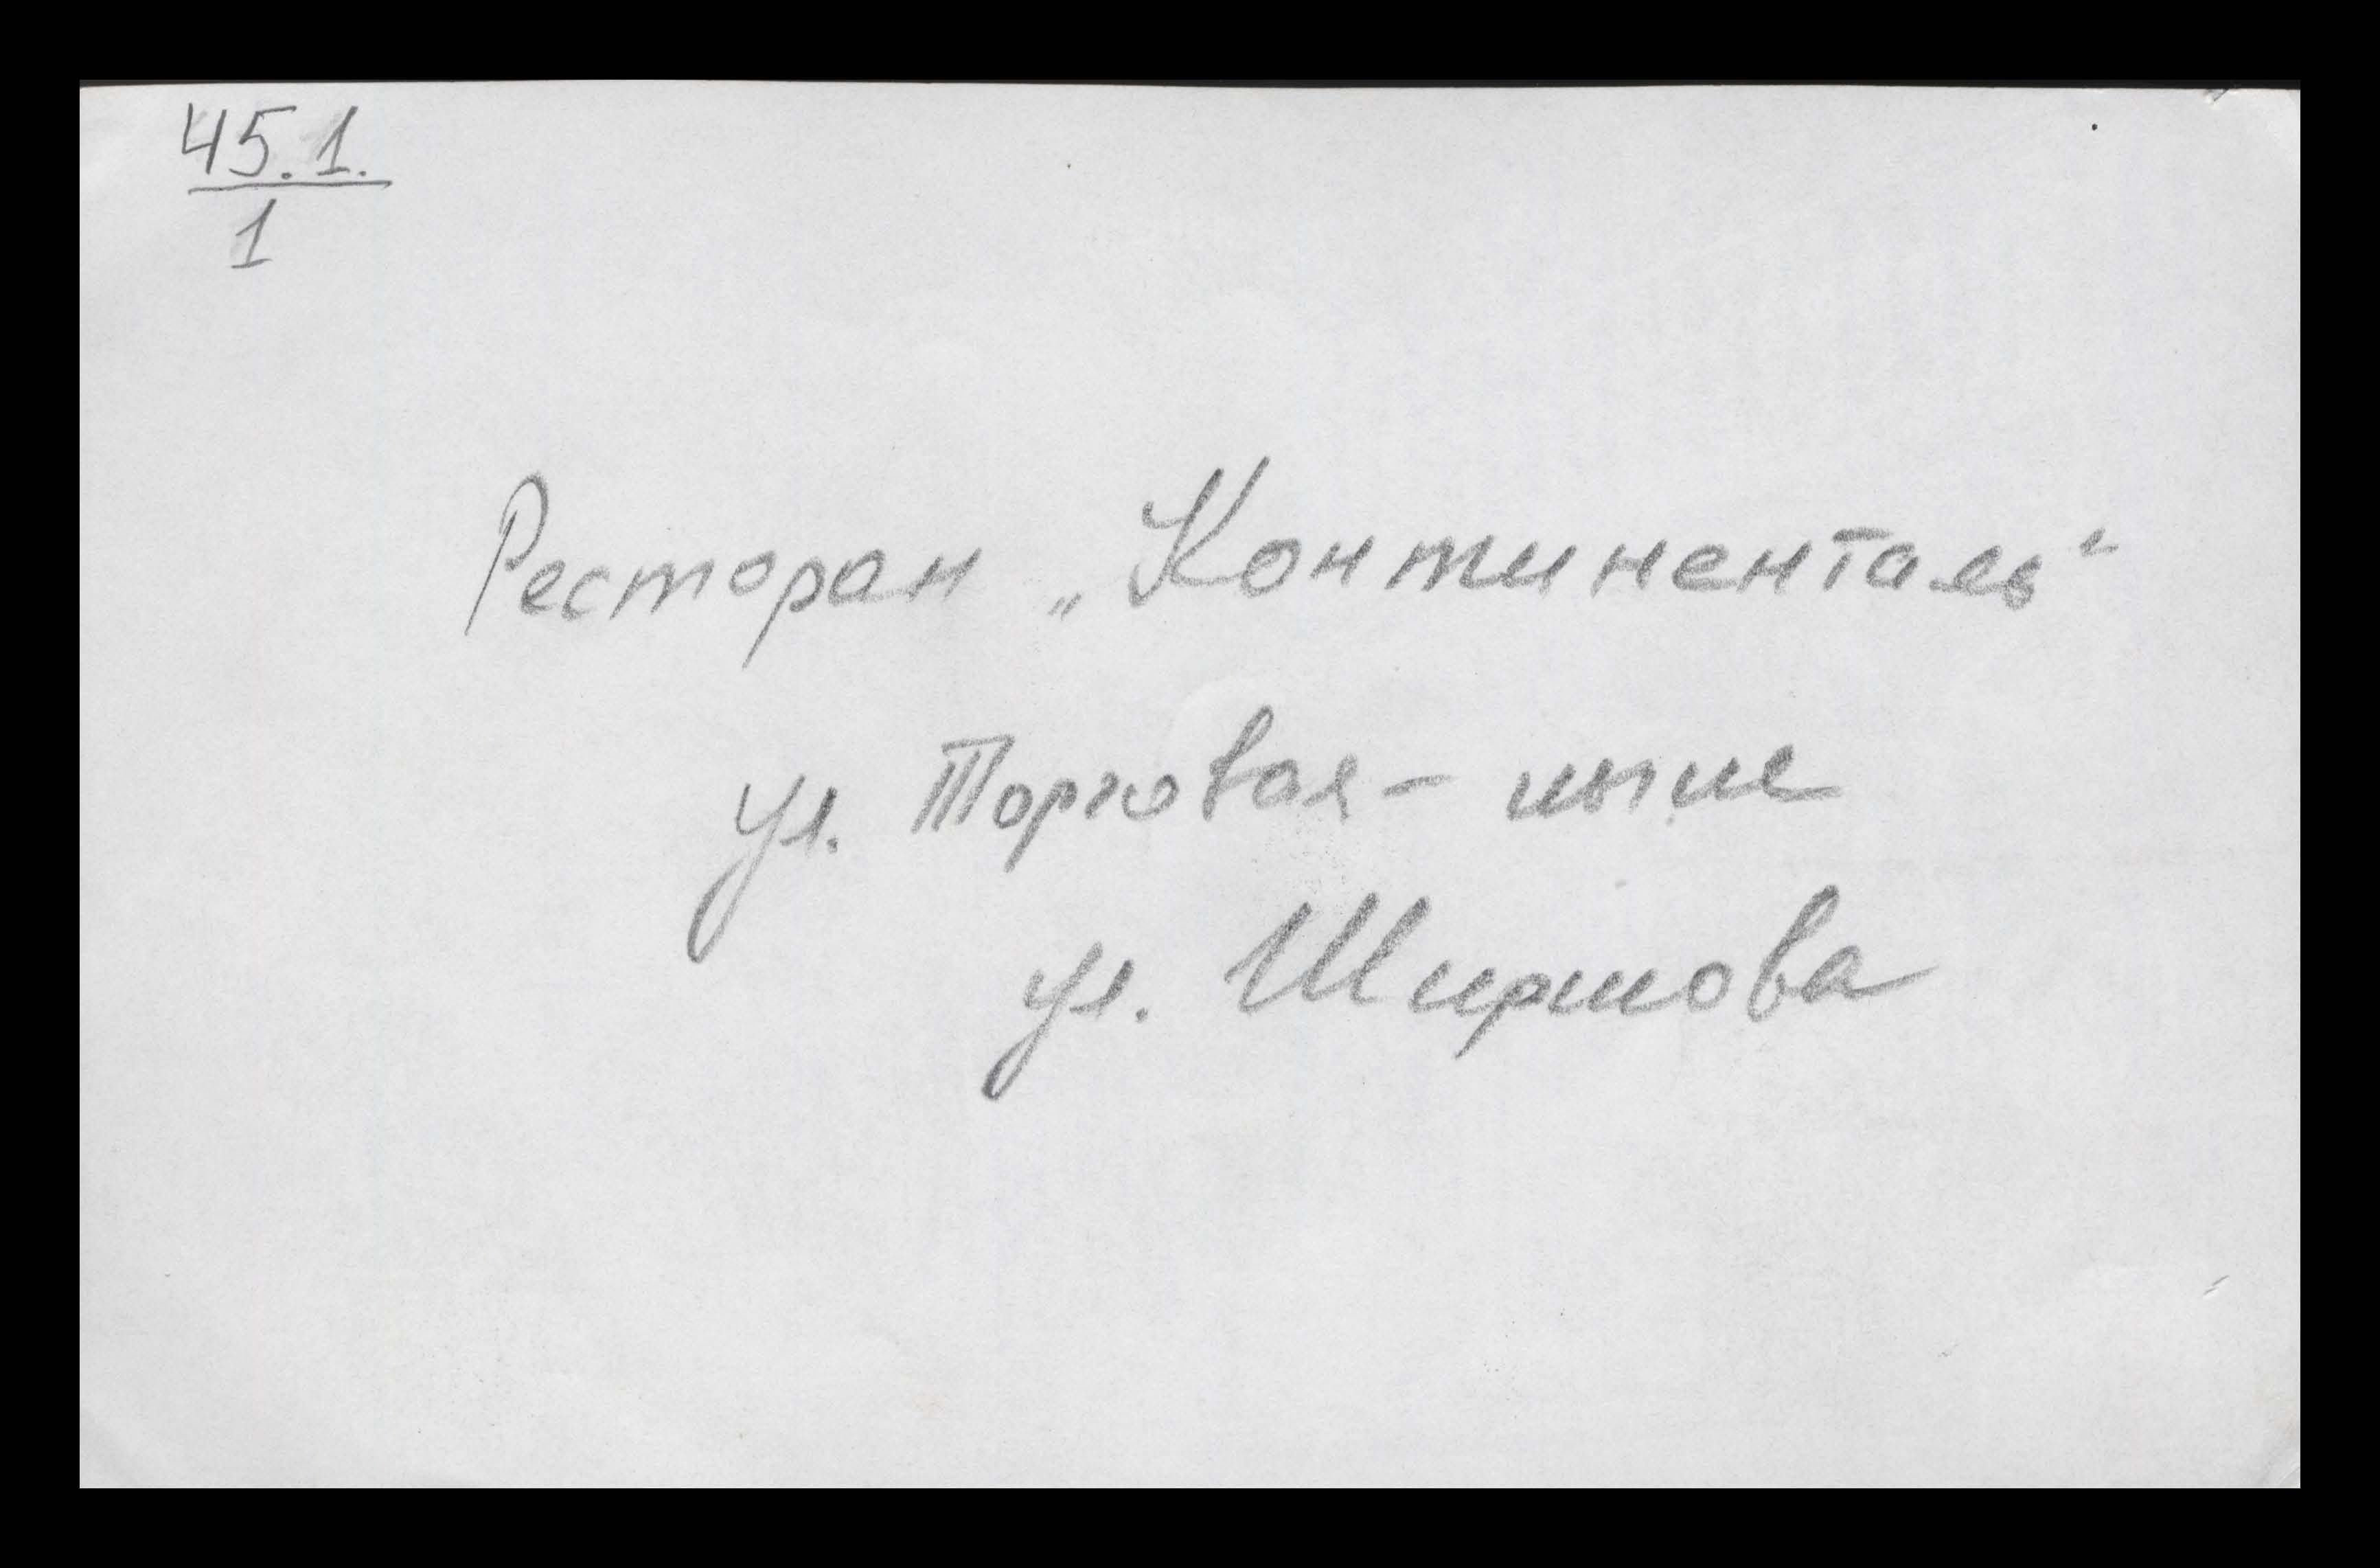 45.1.
1
Ресторан „Континенталь“
ул. Торговая - ныне
ул. Ширшова